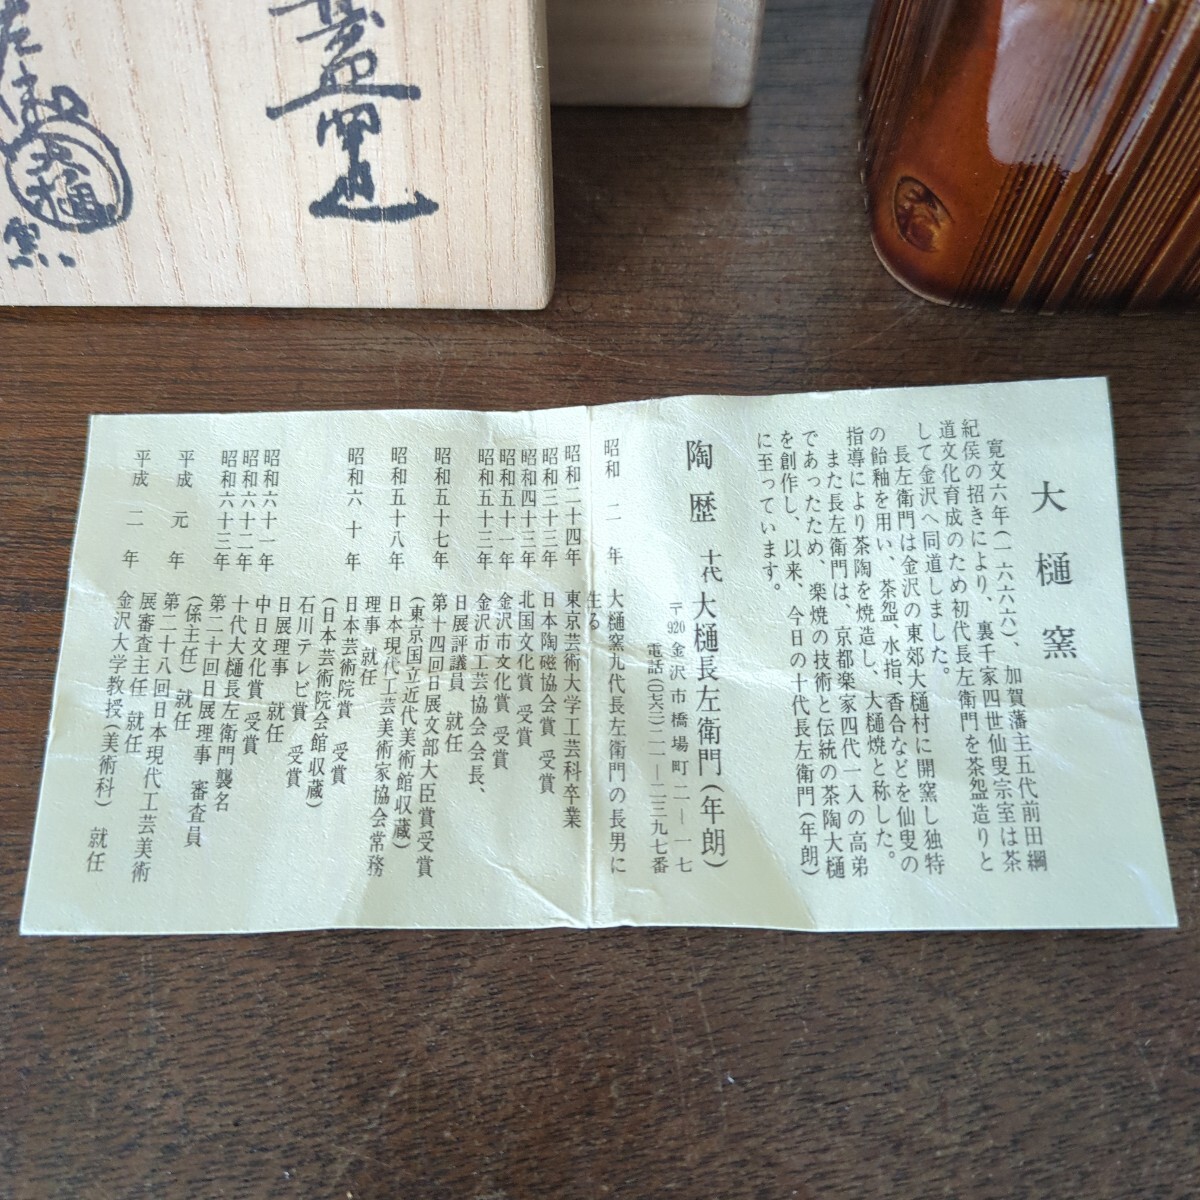 蓋置
大樋
窯
大樋窯
寛文六年(一六六六)、加賀藩主五代前田綱
紀侯の招きにより、裏千家四世仙叟宗室は茶
道文化育成のため初代長左衛門を茶盌造りと
して金沢へ同道しました。
長左衛門は金沢の東郊大樋村に開窯し独特
の飴釉を用い、茶盌、水指、香合などを仙叟の
指導により茶陶を焼造し、大樋焼と称した。
また長左衛門は、京都楽家四代一入の高弟
であったため、楽焼の技術と伝統の茶陶大樋
を創作し、以来、今日の十代長左衛門(年朗)
に至っています。
陶歴 十代 大樋長左衛門(年朗)
〒920 金沢市橋場町二―一七
電話(〇七六二)二一―二三九七番
昭和 二 年 大樋窯九代長左衛門の長男に
生る
昭和二十四年 東京芸術大学工芸科卒業
昭和三十三年 日本陶磁協会賞 受賞
昭和四十三年 北国文化賞 受賞
昭和五十一年 金沢市文化賞 受賞
昭和五十三年 金沢市工芸協会会長、
日展評議員 就任
昭和五十七年 第十四回日展文部大臣賞受賞
(東京国立近代美術館収蔵)
昭和五十八年 日本現代工芸美術家協会常務
理事 就任
昭和六十年 日本芸術院賞 受賞
(日本芸術院会館収蔵)
石川テレビ賞 受賞
昭和六十一年 日展理事 就任
昭和六十二年 中日文化賞 受賞
昭和六十三年 十代大樋長左衛門襲名
第二十回日展理事 審査員
(係主任) 就任
平成 元 年 第二十八回日本現代工芸美術
展審査主任 就任
平成 二 年 金沢大学教授(美術科) 就任